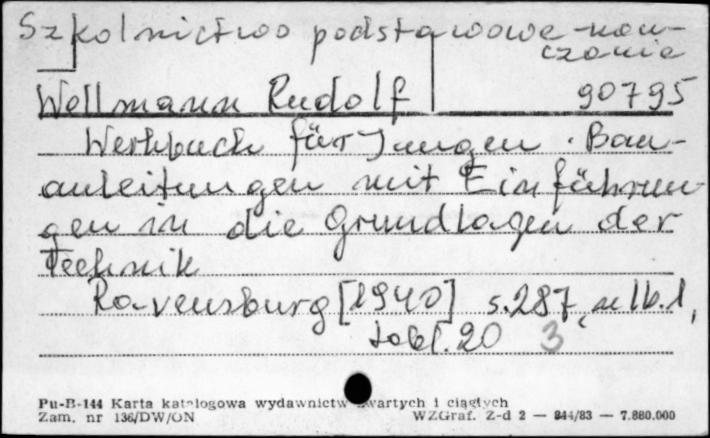 Szkolnictwo podstawowe-nau-
czanie
Wollmann Rudolf 90795
Werkbuch für Jungen. Bau-
anleitungen mit Einführun-
gen in die Grundlagen der
Technik
Ravensburg [1940] s.287, nlb.1,
tabl.20 3
Pu-B-144 Karta katalogowa wydawnictw zwartych i ciągłych
Zam. nr 136/DW/ON WZGraf. Z-d 2 — 844/83 — 7.880.000